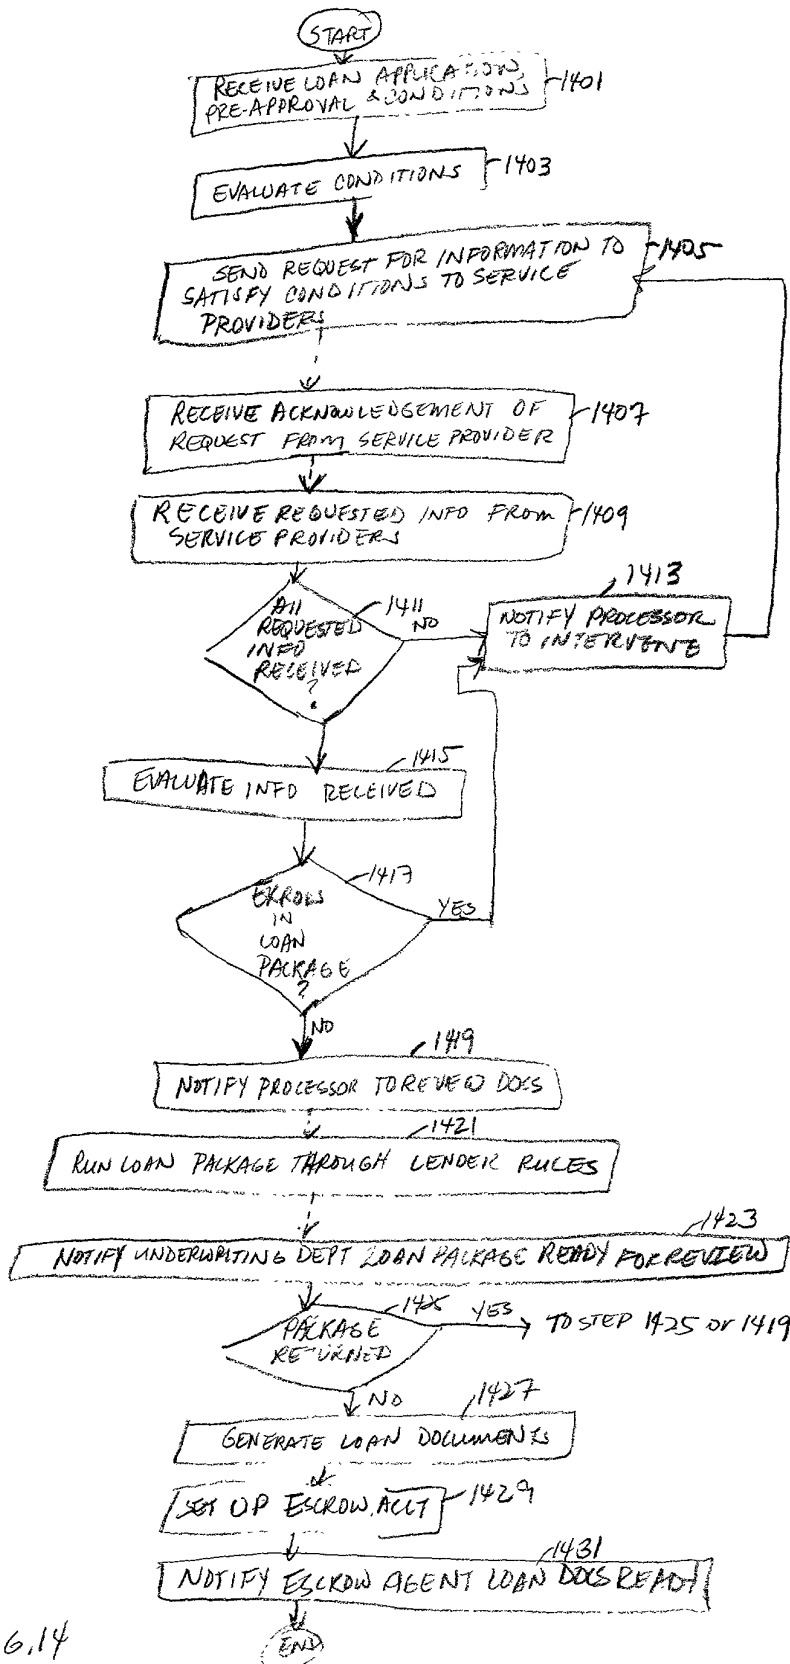 START
RECEIVE LOAN APPLICATION,
PRE-APPROVAL & CONDITIONS
1401
EVALUATE CONDITIONS
1403
SEND REQUEST FOR INFORMATION TO
SATISFY CONDITIONS TO SERVICE
PROVIDERS
1405
RECEIVE ACKNOWLEDGEMENT OF
REQUEST FROM SERVICE PROVIDER
1407
RECEIVE REQUESTED INFO FROM
SERVICE PROVIDERS
1409
1413
All
REQUESTED
INFO
RECEIVED
?
1411
NO
NOTIFY PROCESSOR
TO INTERVENE
1415
EVALUATE INFO RECEIVED
1417
ERRORS
IN
LOAN
PACKAGE
?
YES
NO
1419
NOTIFY PROCESSOR TO REVEW DOCS
1421
RUN LOAN PACKAGE THROUGH LENDER RULES
1423
NOTIFY UNDERWRITING DEPT LOAN PACKAGE READY FOR REVIEW
1425
PACKAGE
RETURNED
YES
TO STEP 1425 or 1419
NO
1427
GENERATE LOAN DOCUMENTS
SET UP ESCROW ACCT
1429
1431
NOTIFY ESCROW AGENT LOAN DOCS READY
END
6.14